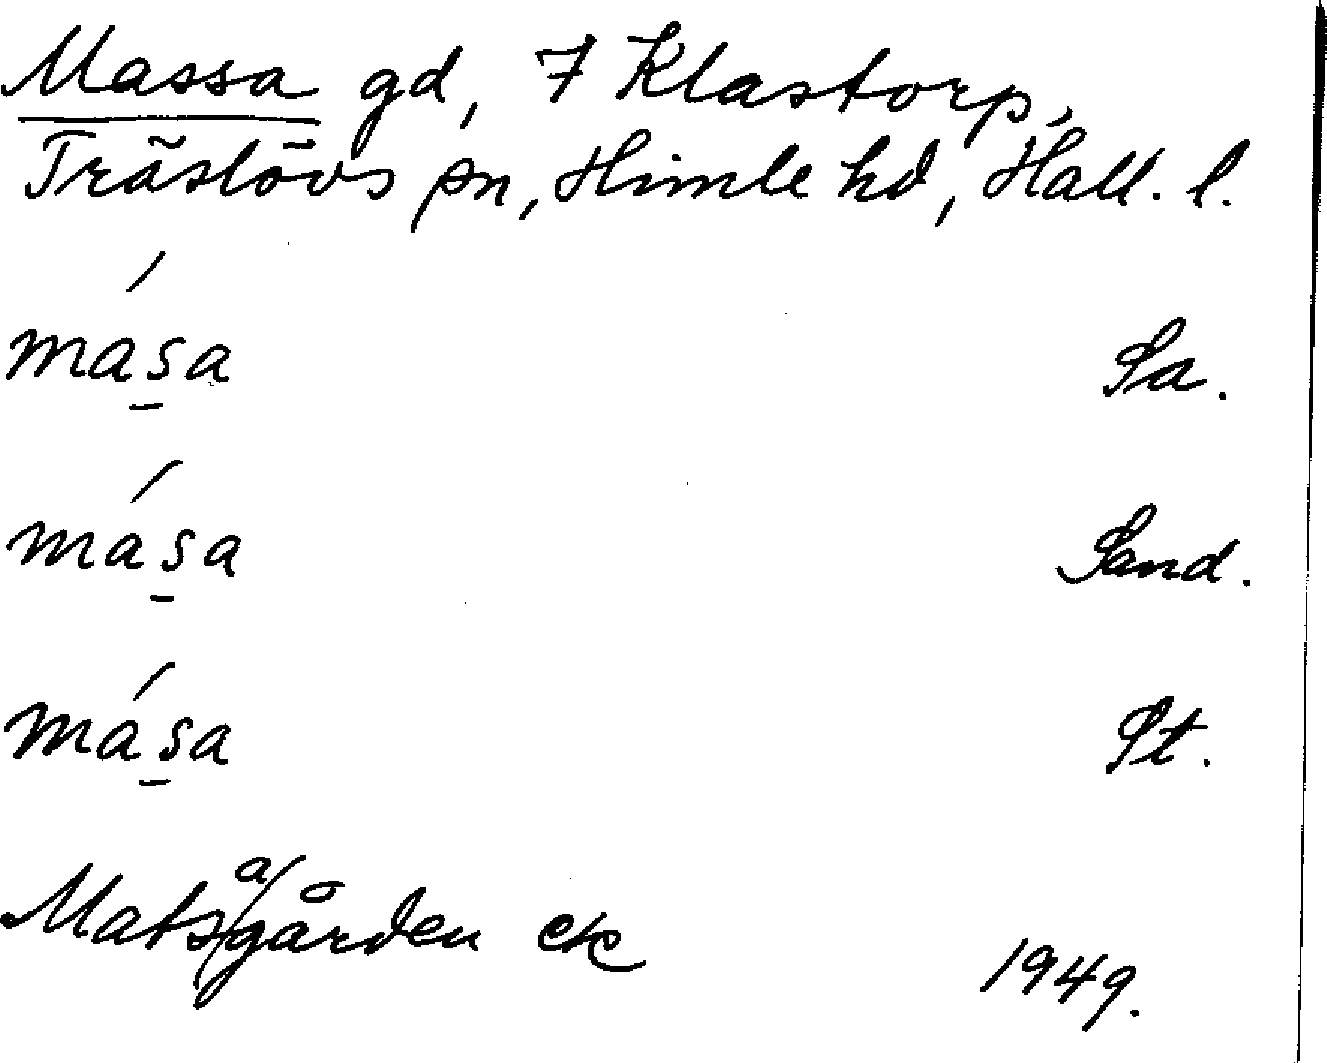 Massa gd, 7 Klastorp,
Träslövs sn, Himle hd, Hall. l.
mása Sa.
mása Sand.
mása St.
Matsagården ek
1949.